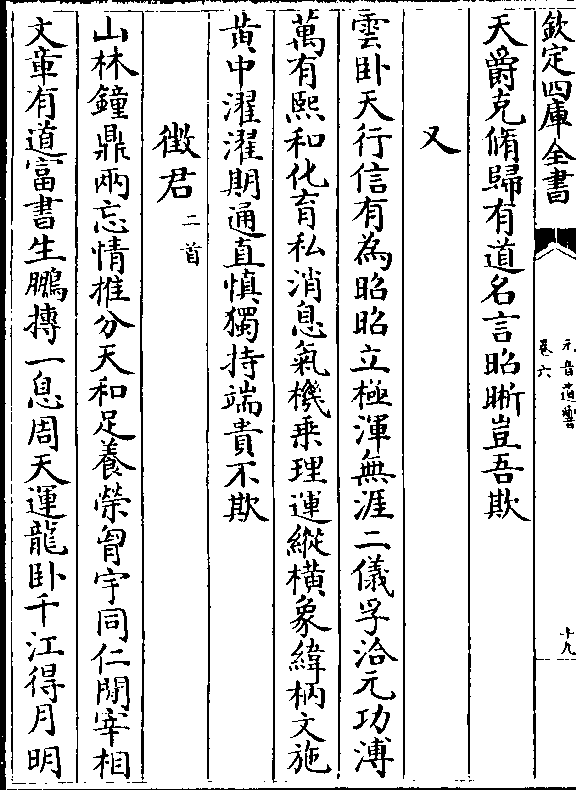 欽定四庫全書
元音遺響
卷六
十九
天爵克脩歸有道名言昭晰豈吾欺
又
雲卧天行信有為昭昭立極渾無涯二儀孚洽元功溥
萬有熙和化育私消息氣機乗理運縱橫象緯柄文施
黄中濯濯期通直慎獨持端貴不欺
徴君二首
山林鐘鼎兩忘情推分天和足養榮胷宇同仁開宰相
文章有道富書生鵬摶一息周天運龍卧千江得月明